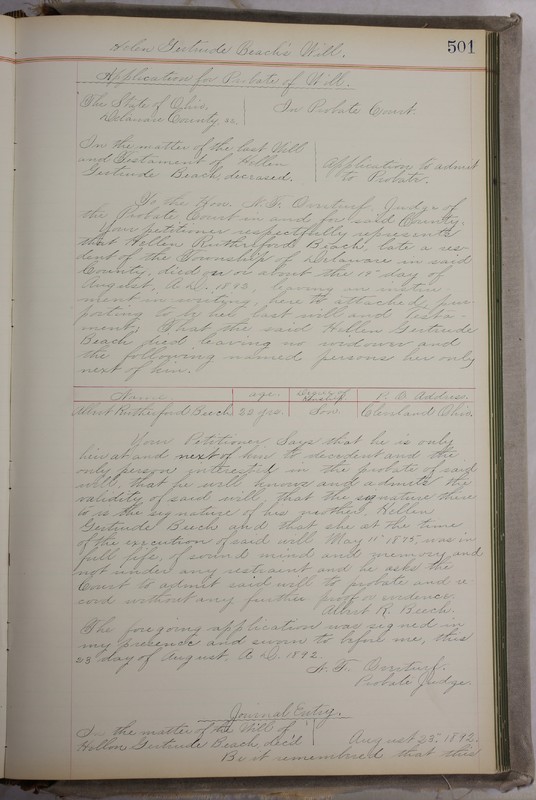 Helen Gertrude Beach's Will.
501
Application for Probate of Will.
The State of Ohio,
Delaware County ss
In Probate Court.
In the matter of the last Will
and Testament of Hellen
Gertrude Beach, deceased.
Application to admit
to Probate.
To the Hon. N. F. Overturf, Judge of
the Probate Court in and for said County.
Your petitioner respectfully represents
that Hellen Rutherford Beach, late a res-
dent of the Township of Delaware in said
County, died on or about the 18" day of
August, A.D. 1892, leaving an instru
ment in writing, here to attached, pur-
porting to by her last will and testa-
ment; That the said Hellen Gertrude
Beach died leaving no widown and
the following named persons her only
next of kin.
Name age. Degree of Kinship P.O. Address.
Albert Rutherford Beech 22 yrs. Son Cleveland Ohio.
Your Petitioner says that he is only
heir at and next of kin to decedent and the
only person interested in the probate of said
will, that he will knows and admits the
validity of said will, that the signature there
to is the signature of his mother Hellen
Gertrude Beech and that she at the time
of the execution of said will May 11" 1875, was in
full life, of sound mind and memory, and
not under any restraint and he asks the
Court to admit said will to probate and re
cord without any further proof or evidence.
Albert R. Beech.
The foregoing application was signed in
my presence and sworn to before me, this
23" day of August, A.D. 1892.
N. F. Overturf.
Probate Judge
Journal Entry.
In the matter of the Will of
Hellen Gertrude Beach, dec'd
August 23", 1892.
Be it remembered that this